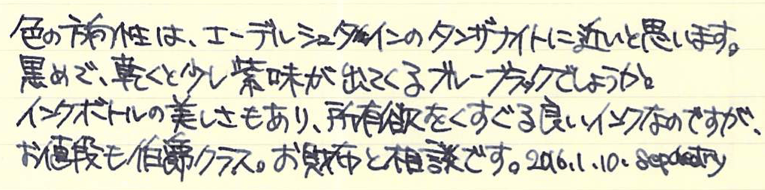 色の方向性は、エーデルシュタインのタンザナイトに近いと思います。
黒めで、乾くと少し紫味が出てくるブルーブラックでしょうか。
インクボトルの美しさもあり、所有欲をくすぐる良いインクなのですが、
お値段も伯爵クラス。お財布と相談です。2016.1.10.